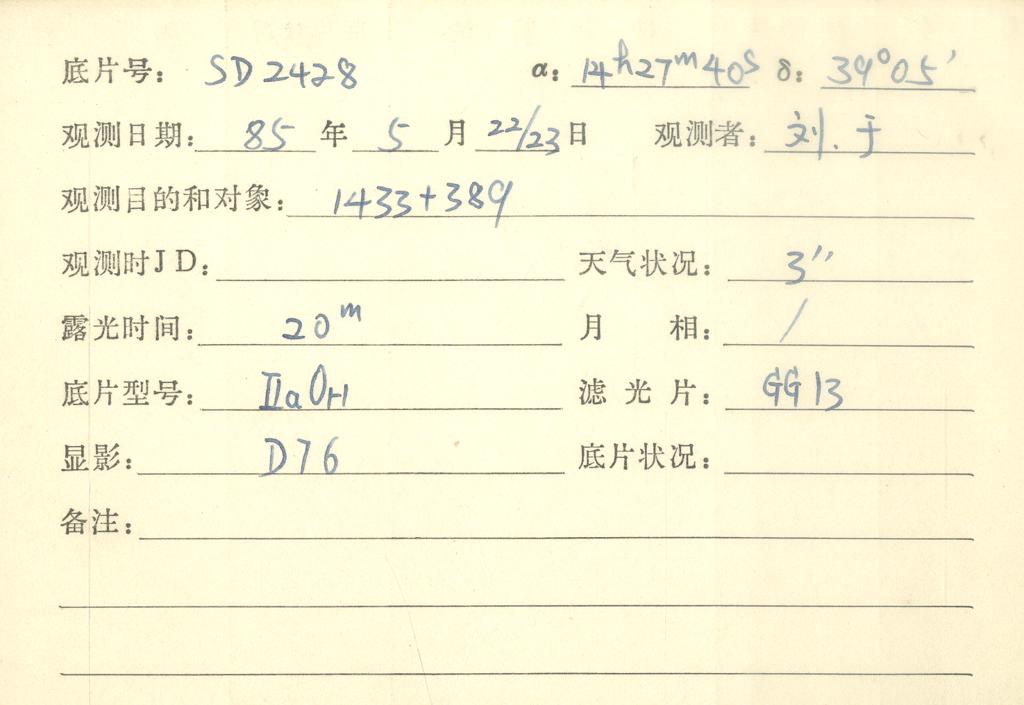 底片号: SD2428 α: 14h27m40s δ: 39°05′
观测日期: 85 年 5 月 22/23 日 观测者: 刘、于
观测目的和对象: 1433+389
观测时JD: 天气状况: 3″
露光时间: 20m 月 相: /
底片型号: IIaOH 滤光片: GG13
显影: D76 底片状况:
备注: